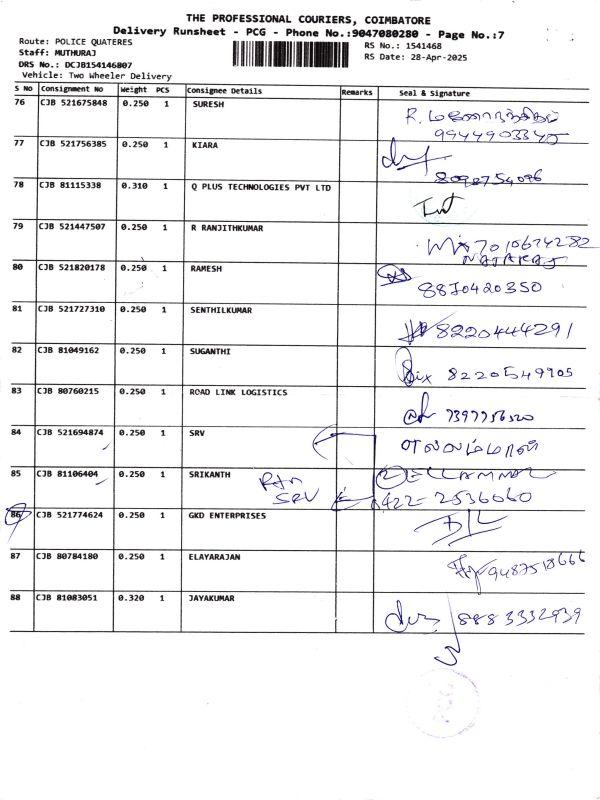 THE PROFESSIONAL COURIERS, COIMBATORE
Delivery Runsheet - PCG - Phone No.:9047080280 - Page No.:7
Route: POLICE QUATERES
RS No.: 1541468
Staff: MUTHURAJ
RS Date: 28-Apr-2025
DRS No.: DCJB154146807
Vehicle: Two Wheeler Delivery
S No Consignment No Weight PCS Consignee Details Remarks Seal & Signature
76 CJB 521675848 0.250 1 SURESH
R.
9944903345
77 CJB 521756385 0.250 1 KIARA
8098754096
78 CJB 81115338 0.310 1 Q PLUS TECHNOLOGIES PVT LTD
79 CJB 521447507 0.250 1 R RANJITHKUMAR
7010674282
NATARAJ
80 CJB 521820178 0.250 1 RAMESH
8870420350
81 CJB 521727310 0.250 1 SENTHILKUMAR
8220444291
82 CJB 81049162 0.250 1 SUGANTHI
8220549905
83 CJB 80760215 0.250 1 ROAD LINK LOGISTICS
7397756520
84 CJB 521694874 0.250 1 SRV
எல்லம்மாள்
85 CJB 81106404 0.250 1 SRIKANTH
ELLAMMAL
SRV 0422-2536060
86 CJB 521774624 0.250 1 GKD ENTERPRISES
87 CJB 80784180 0.250 1 ELAYARAJAN
9487513666
88 CJB 81083051 0.320 1 JAYAKUMAR
8883332939